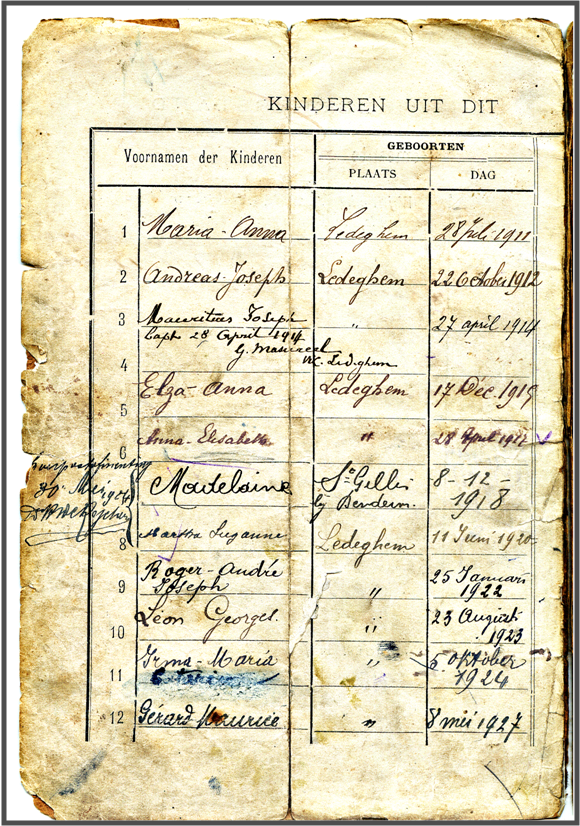 KINDEREN UIT DIT
Voornamen der Kinderen
GEBOORTEN
PLAATS
DAG
1 Maria-Anna Ledeghem 28 Juli 1911
2 Andreas-Joseph Ledeghem 22 October 1912
3 Mauritius Joseph " 27 april 1914
bapt. 28 April 1914
G.
4 Ledeghem
Elza-Anna Ledeghem 17 Dec. 1915
5
Anna-Elisabeth " 28 April 1917
6
Madeleine St Gillis 8-12-
bij Denderm. 1918
8 Martha Suzanne Ledeghem 11 Juni 1920
Roger-André 25 Januari
9 Joseph " 1922
Léon Georges. " 23 Augusti
10 1923
Irma-Maria " 5 oktober
11 1924
12 Gérard Maurice " 8 mei 1927